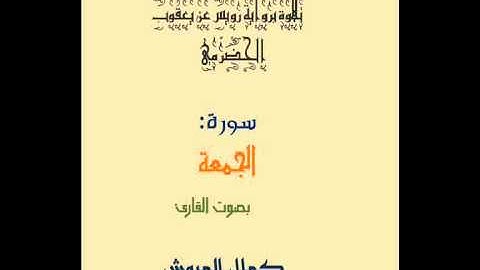 تلاوة برواية رويس عن يعقوب
الحضرمي
سورة:
الجمعة
بصوت القارئ
كمال المروش